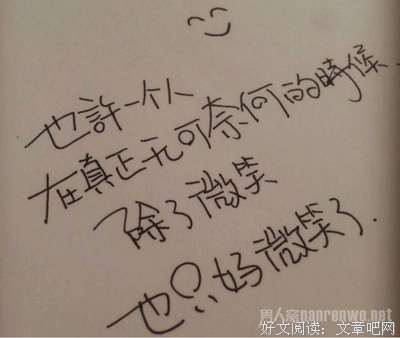 也許一个人
在真正无可奈何的時候
除了微笑
也只好微笑了.
男人窝nanrenwo.net
好文阅读：文章吧网